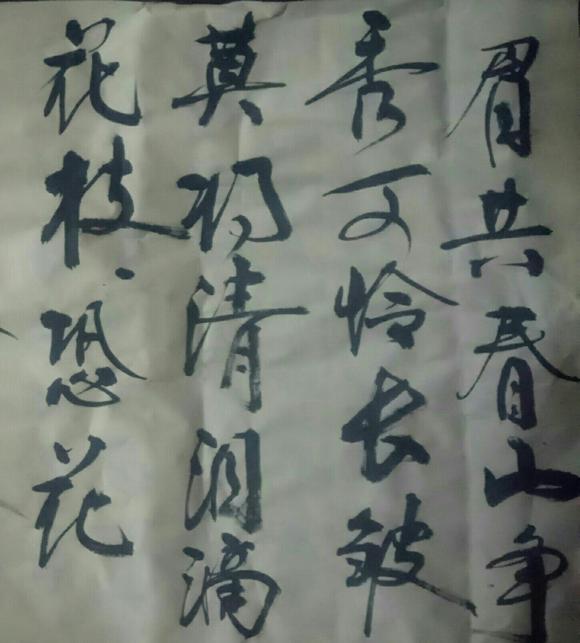 眉共春山争
秀可怜长皱
莫将清泪滴
花枝恐花